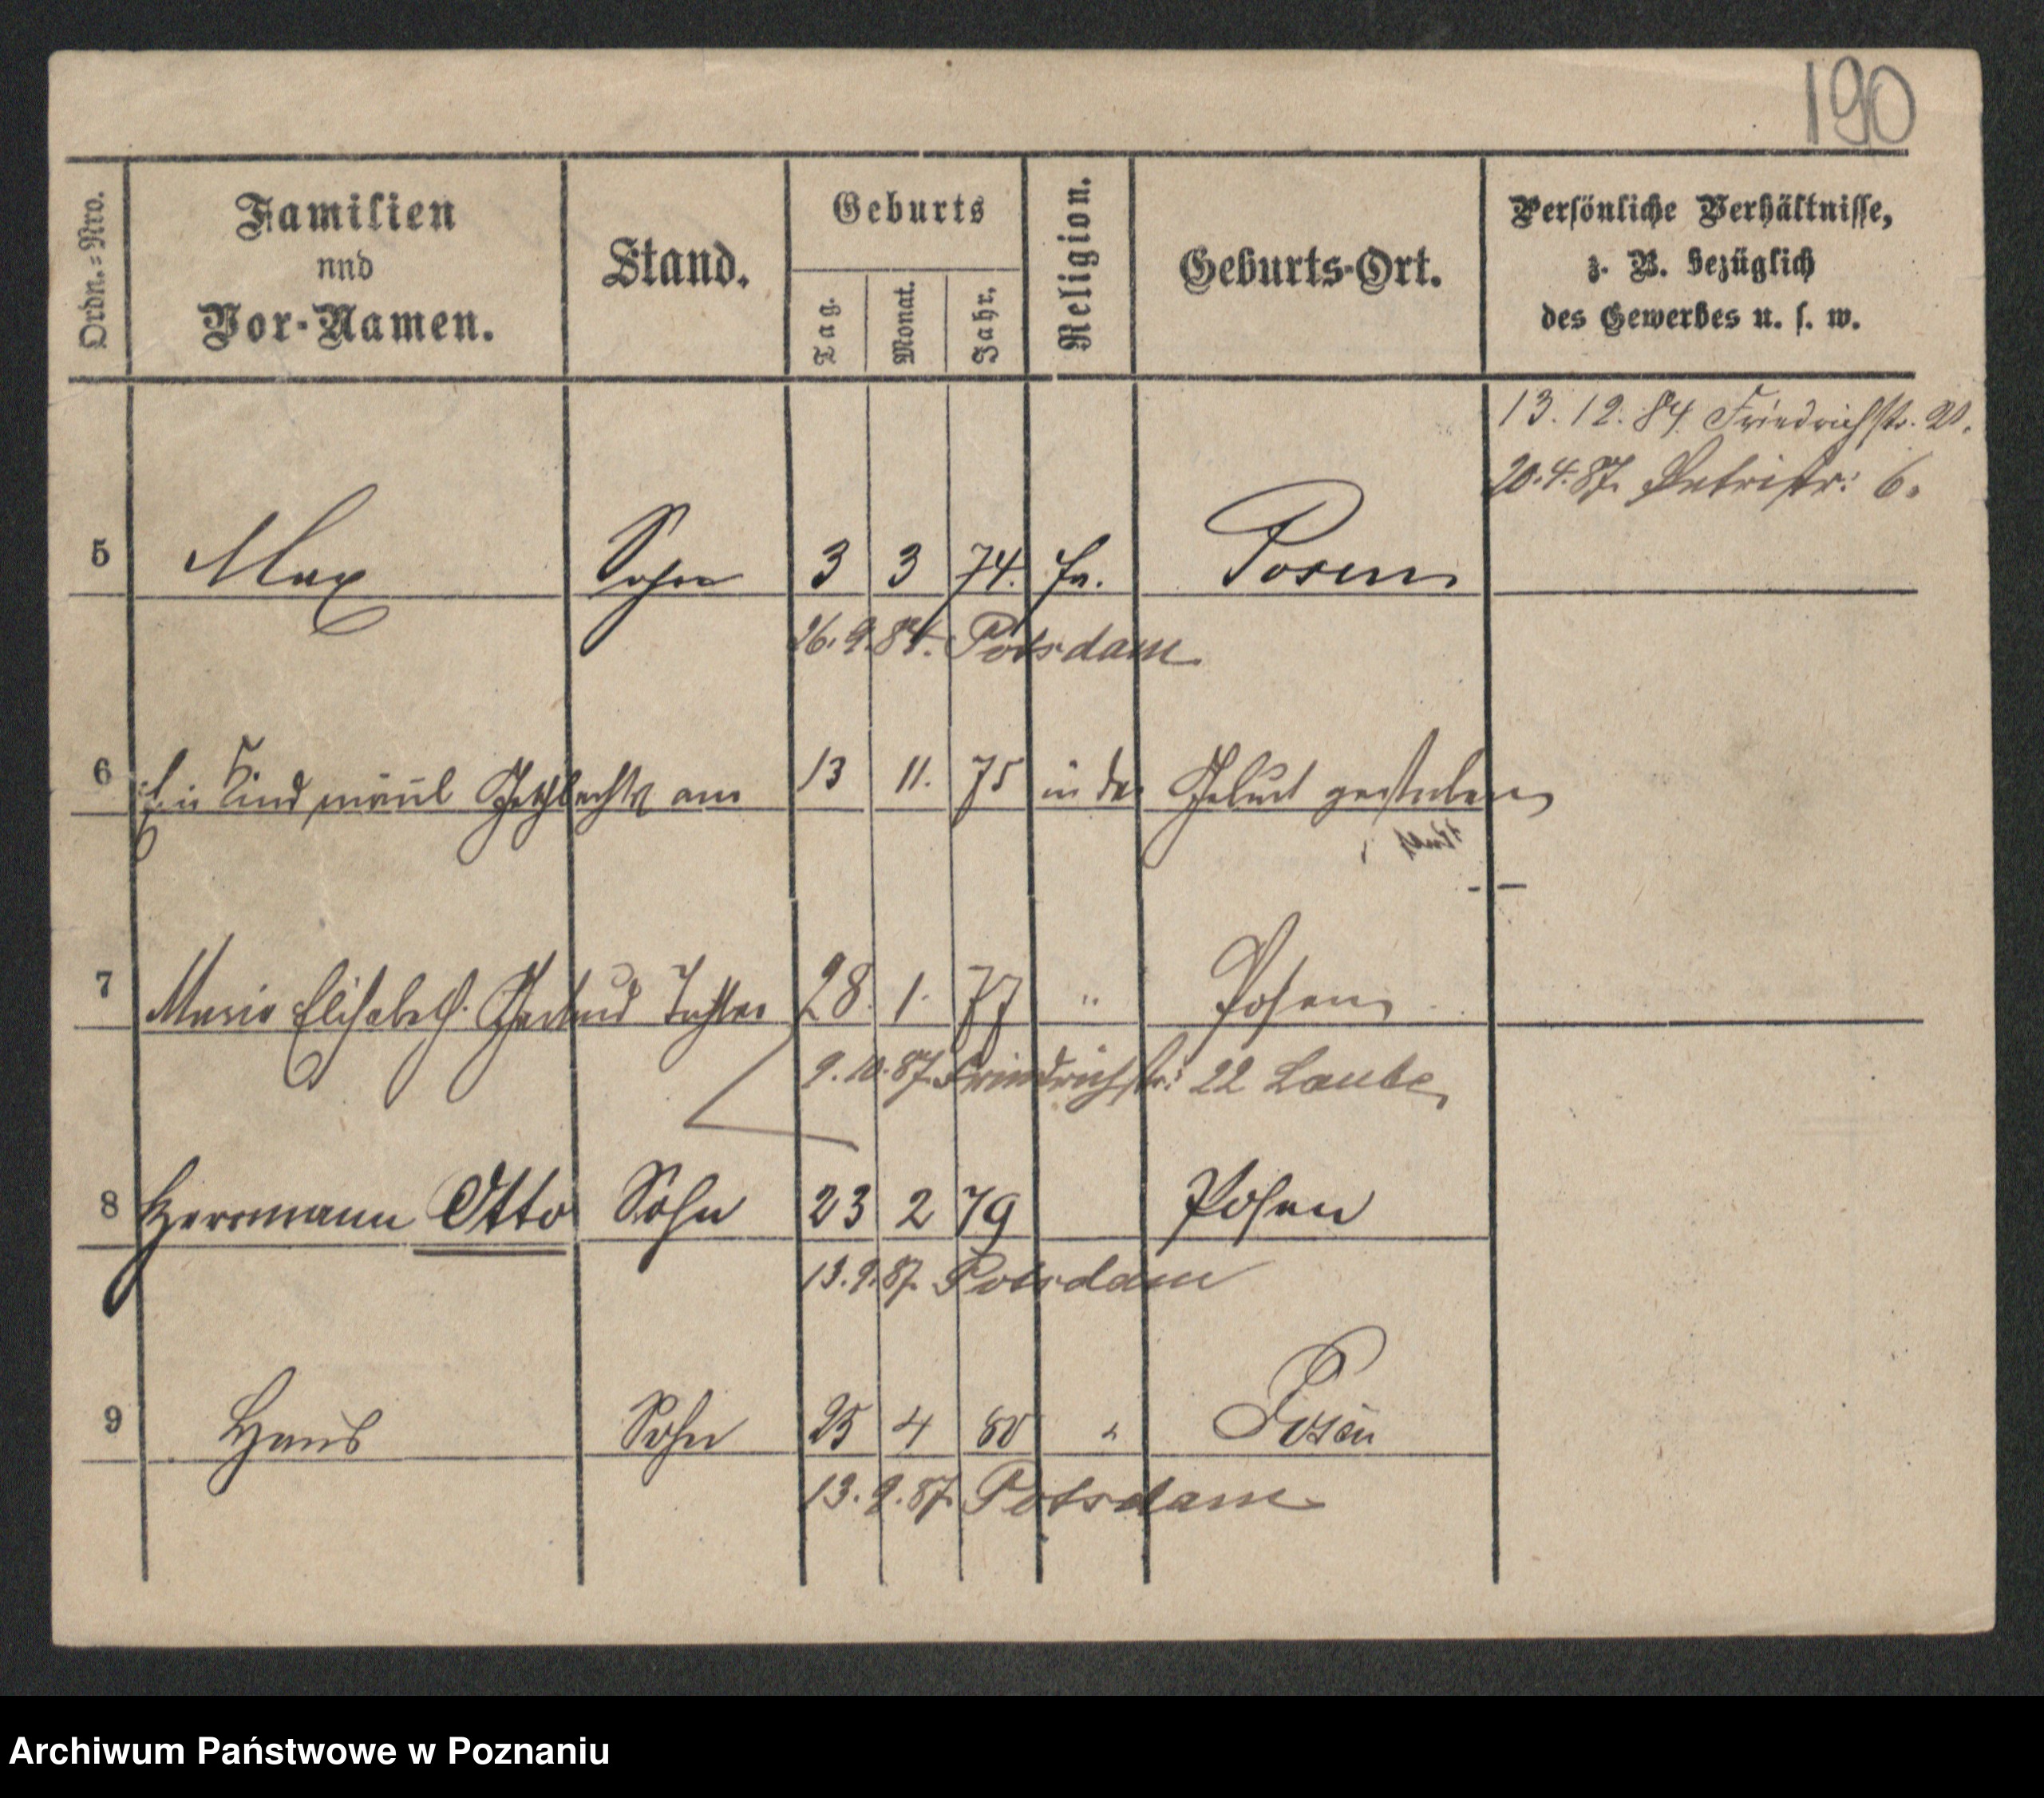 190
Ordn.=Nro.
Familien
nnd
Vor-Namen.
Stand.
Geburts
Tag.
Monat.
Jahr.
Religion.
Geburts-Ort.
Persönliche Verhältnisse,
z. B. bezüglich
des Gewerbes u. s. w.
13. 12. 84. Friedrichstr.
20. 4. 87. Petristr: 6.
5 Max Sohn 3 3 74. Posen
26. 9. 84. Potsdam
6 Ein Kind männl Geschlechts am 13 11. 75 in der Geburt gestorben
7 Marie Elisabeth Gertrud Tochter 28. 1. 77 " Posen
9. 10. 87. Friedrichstr: 22 Laube
8 Herrmann Otto Sohn 23 2 79 Posen
13. 9. 87. Potsdam
9 Hans Sohn 25 4 80 " Posen
13. 9. 87. Potsdam
Archiwum Państwowe w Poznaniu